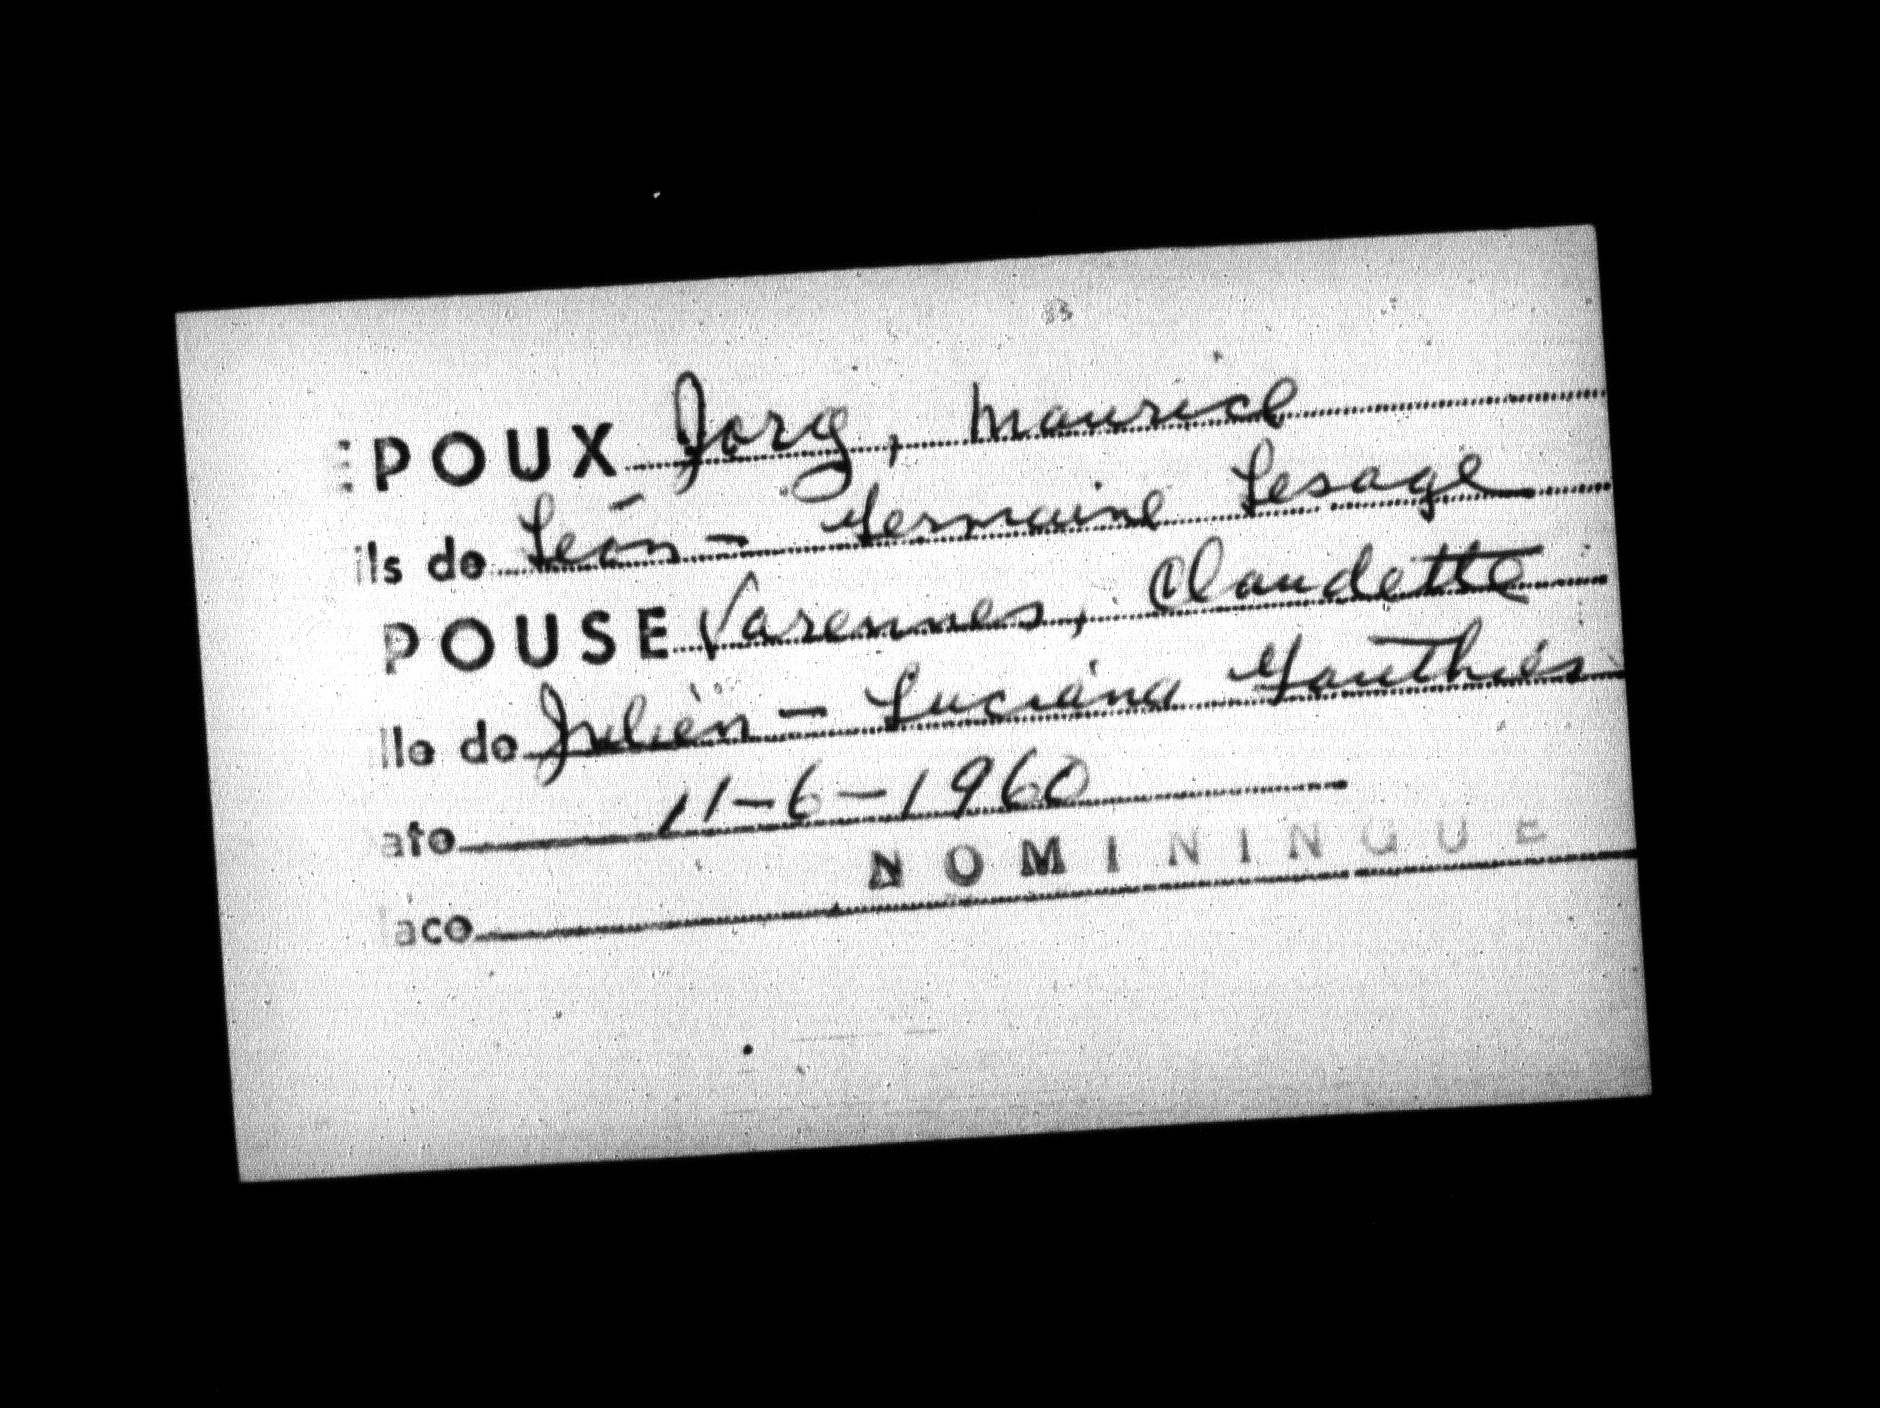 EPOUX Jorg, Maurice
ils de Léon - Germaine Lesage
POUSE Varennes, Claudette
lle de Julien - Luciana Gauthier
ate 11-6-1960
lace NOMININGUE